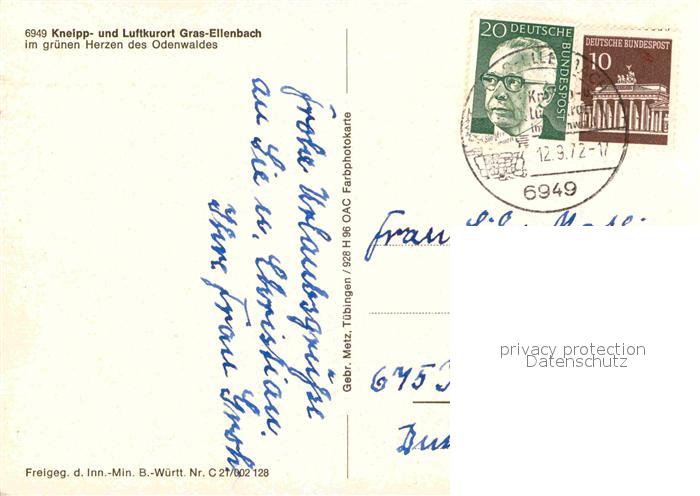 6949 Kneipp- und Luftkurort Gras-Ellenbach
im grünen Herzen des Odenwaldes
Frohe Urlaubsgrüße
an Sie u. Christian.
Ihre Frau Groh
Gebr. Metz, Tübingen / 928 H 96 OAC Farbphotokarte
Freigeg. d. Inn.-Min. B.-Württ. Nr. C 21/002 128
20 DEUTSCHE BUNDESPOST
DEUTSCHE BUNDESPOST
10
12.9.72-17
6949
Frau
675
privacy protection
Datenschutz